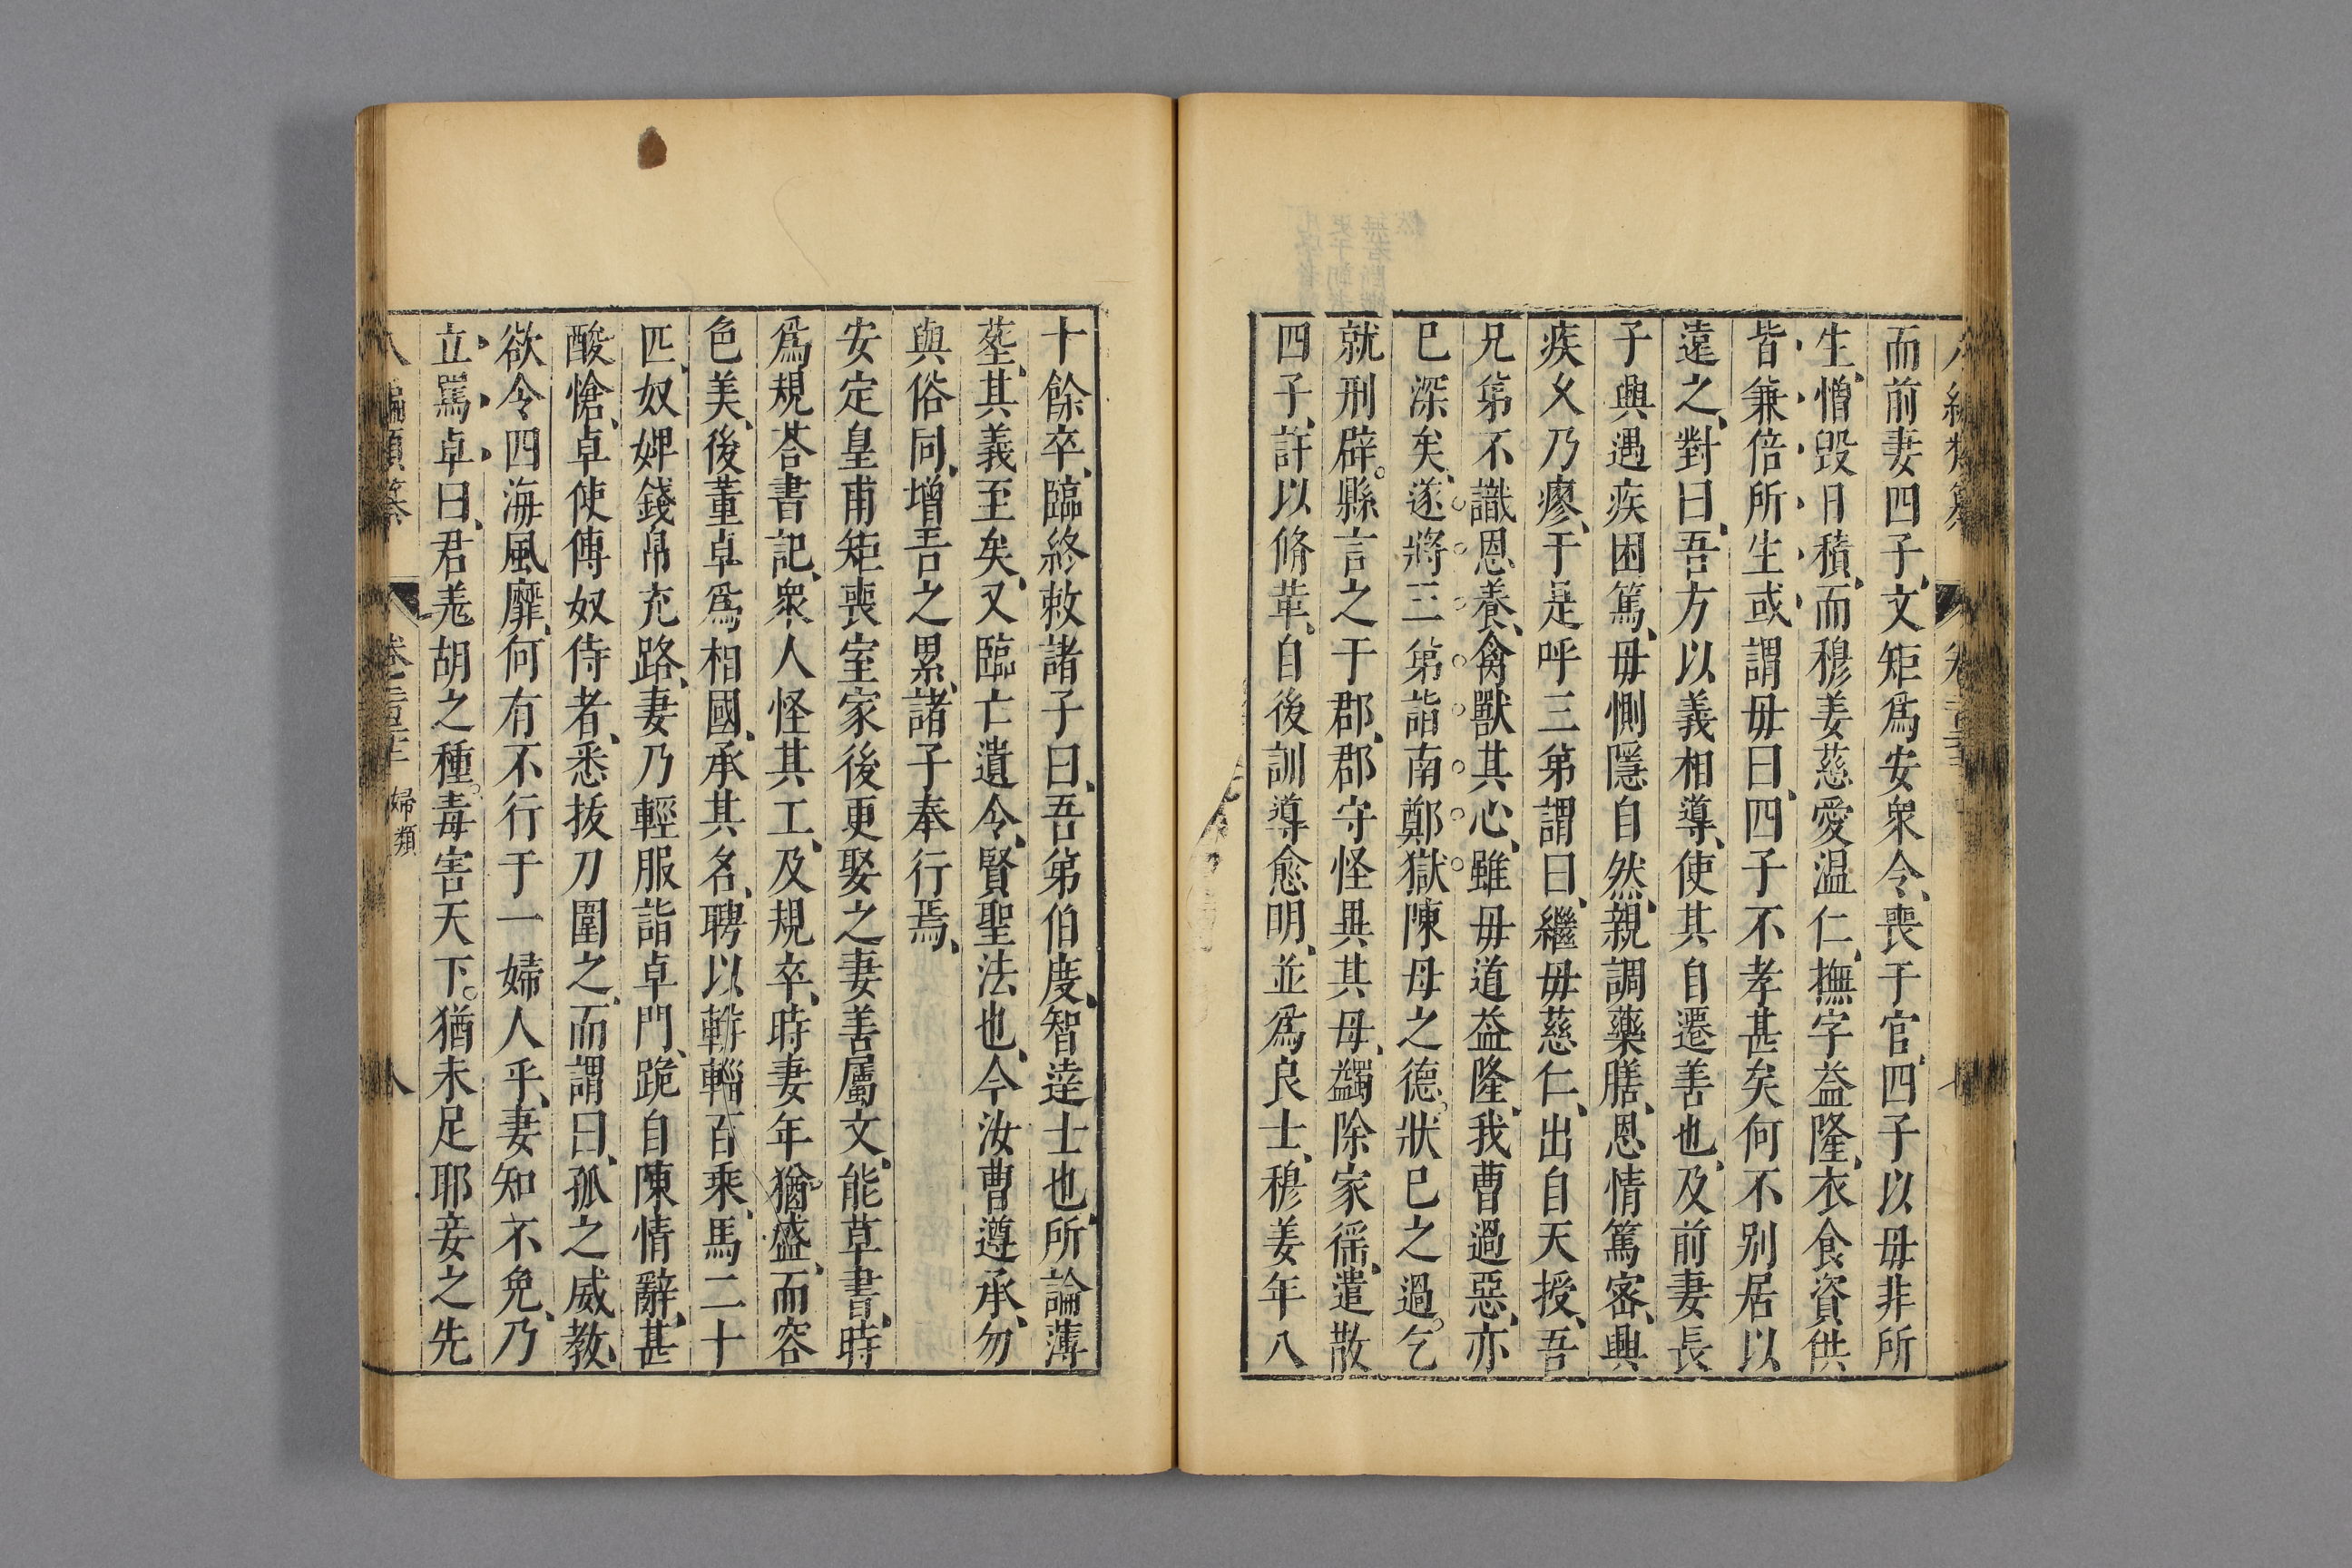 而前妻四子、文矩爲安衆令、喪于官、四子以毋非所
生、憎毁日積、而穆姜慈愛温仁、撫字益隆、衣食資供
皆兼倍所生、或謂毋曰、四子不孝甚矣何不别居以
遠之、對曰、吾方以義相導、使其自遷善也、及前妻長
子興遇疾困篤、毋惻隱自然、親調藥膳、恩情篤密、興
疾久乃瘳、于是呼三弟謂曰、繼毋慈仁、出自天授、吾
兄弟不識恩養、禽獸其心、雖毋道益隆、我曹過惡、亦
巳深矣、遂將三弟詣南鄭獄陳母之德。狀巳之過。乞
就刑辟。縣言之于郡、郡守怪異其母、蠲除家徭、遣散
四子、許以脩革、自後訓導愈明、並爲良士、穆姜年八
十餘卒、臨終敕諸子曰、吾弟伯度、智達士也、所論薄
葬、其義至矣、又臨亡遺令、賢聖法也、今汝曹遵承、勿
與俗同、增吾之累、諸子奉行焉、
安定皇甫矩喪室家後更娶之妻善屬文、能草書、時
爲規荅書記、衆人怪其工、及規卒、時妻年猶盛、而容
色美、後董卓爲相國、承其名、聘以軿輜百乘、馬二十
匹、奴婢錢帛充路、妻乃輕服詣卓門、跪自陳情辭、甚
酸愴、卓使傅奴侍者、悉拔刀圍之、而謂曰、孤之威教、
欲令四海風靡、何有不行于一婦人乎、妻知不免、乃
立罵卓曰、君羌胡之種。毒害天下。猶未足耶妾之先
婦類